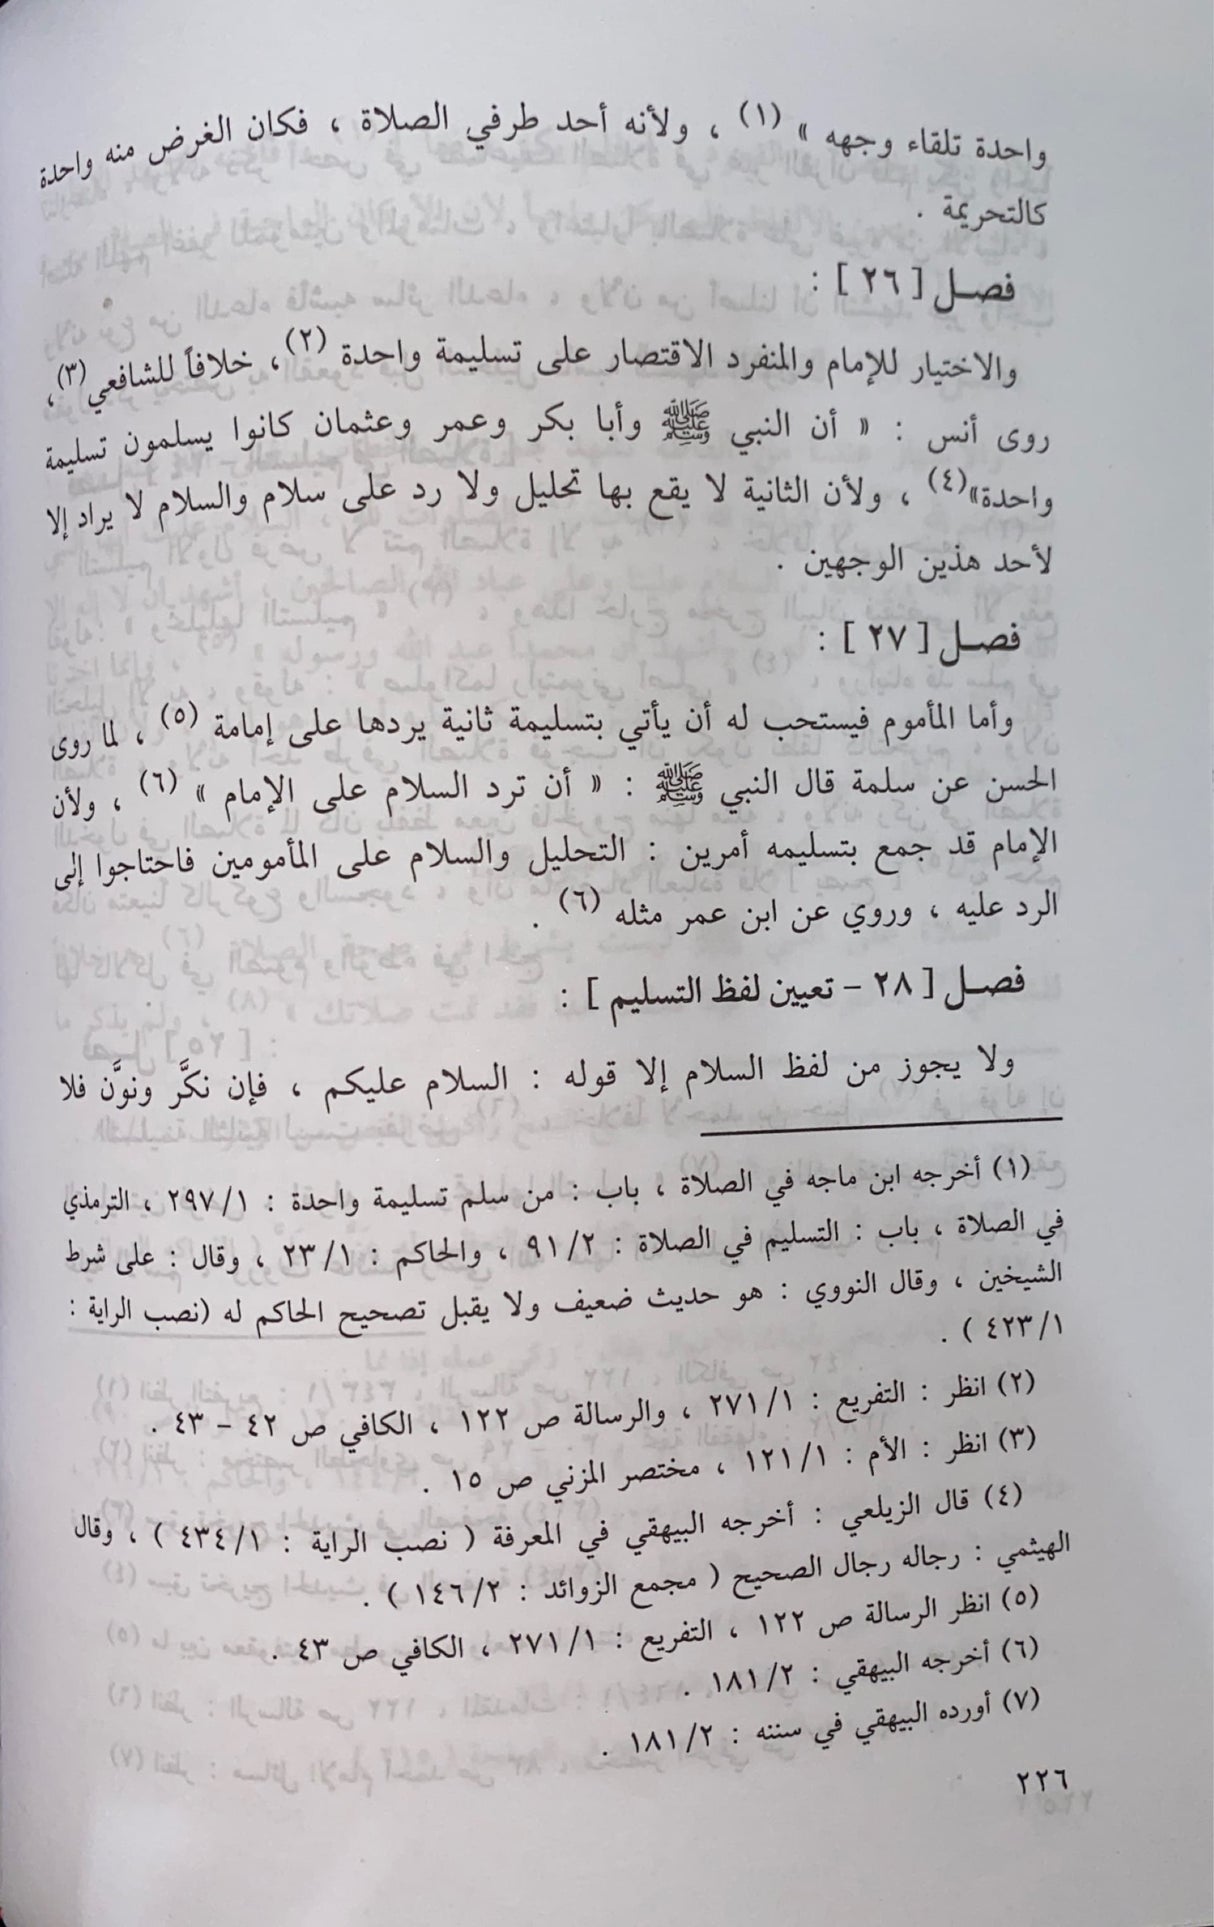 واحدة تلقاء وجهه » (١) ، ولأنه أحد طرفي الصلاة ، فكان الغرض منه واحدة
كالتحريمة .
فصل [ ٢٦ ] :
والاختيار للإمام والمنفرد الاقتصار على تسليمة واحدة (٢)، خلافاً للشافعي (٣)،
روى أنس : « أن النبي ﷺ وأبا بكر وعمر وعثمان كانوا يسلمون تسليمة
واحدة»(٤) ، ولأن الثانية لا يقع بها تحليل ولا رد على سلام والسلام لا يراد إلا
لأحد هذين الوجهين .
فصل [ ٢٧ ] :
وأما المأموم فيستحب له أن يأتي بتسليمة ثانية يردها على إمامة (٥) ، لما روى
الحسن عن سلمة قال النبي ﷺ : « أن ترد السلام على الإمام » (٦) ، ولأن
الإمام قد جمع بتسليمه أمرين : التحليل والسلام على المأمومين فاحتاجوا إلى
الرد عليه ، وروي عن ابن عمر مثله (٦) .
فصل [ ٢٨ – تعيين لفظ التسليم ] :
ولا يجوز من لفظ السلام إلا قوله : السلام عليكم ، فإن نكَّر ونوَّن فلا
(١) أخرجه ابن ماجه في الصلاة ، باب : من سلم تسليمة واحدة : ٢٩٧/١ ، الترمذي
في الصلاة ، باب : التسليم في الصلاة : ٩١/٢ ، والحاكم : ٢٣/١ ، وقال : على شرط
الشيخين ، وقال النووي : هو حديث ضعيف ولا يقبل تصحيح الحاكم له (نصب الراية :
٤٢٣/١ ) .
(٢) انظر : التفريع : ٢٧١/١ ، والرسالة ص ١٢٢ ، الكافي ص ٤٢ – ٤٣ .
(٣) انظر : الأم : ١٢١/١ ، مختصر المزني ص ١٥ .
(٤) قال الزيلعي : أخرجه البيهقي في المعرفة ( نصب الراية : ٤٣٤/١ ) ، وقال
الهيثمي : رجاله رجال الصحيح ( مجمع الزوائد : ١٤٦/٢ ) .
(٥) انظر الرسالة ص ١٢٢ ، التفريع : ٢٧١/١ ، الكافي ص ٤٣ .
(٦) أخرجه البيهقي : ١٨١/٢ .
(٧) أورده البيهقي في سننه : ١٨١/٢ .
٢٢٦